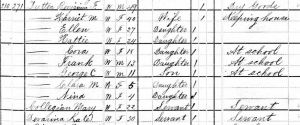 210 271 Benjamin F. W M 49 1 Dry Goods
— Harriet M W F 40 Wife 1 Keeping house
— Ellen W F 27 Daughter 1
— Hattie W F 24 Daughter 1
— Cora W F 18 Daughter 1 At school
— Frank W M 13 1 At school
— George C W M 11 Son 1 At school
— Clara M W F 5 Daughter 1
— W F 4 Daughter 1
Mary W F 22 Servant 1 Servant
Kate W F 30 Servant 1 Servant